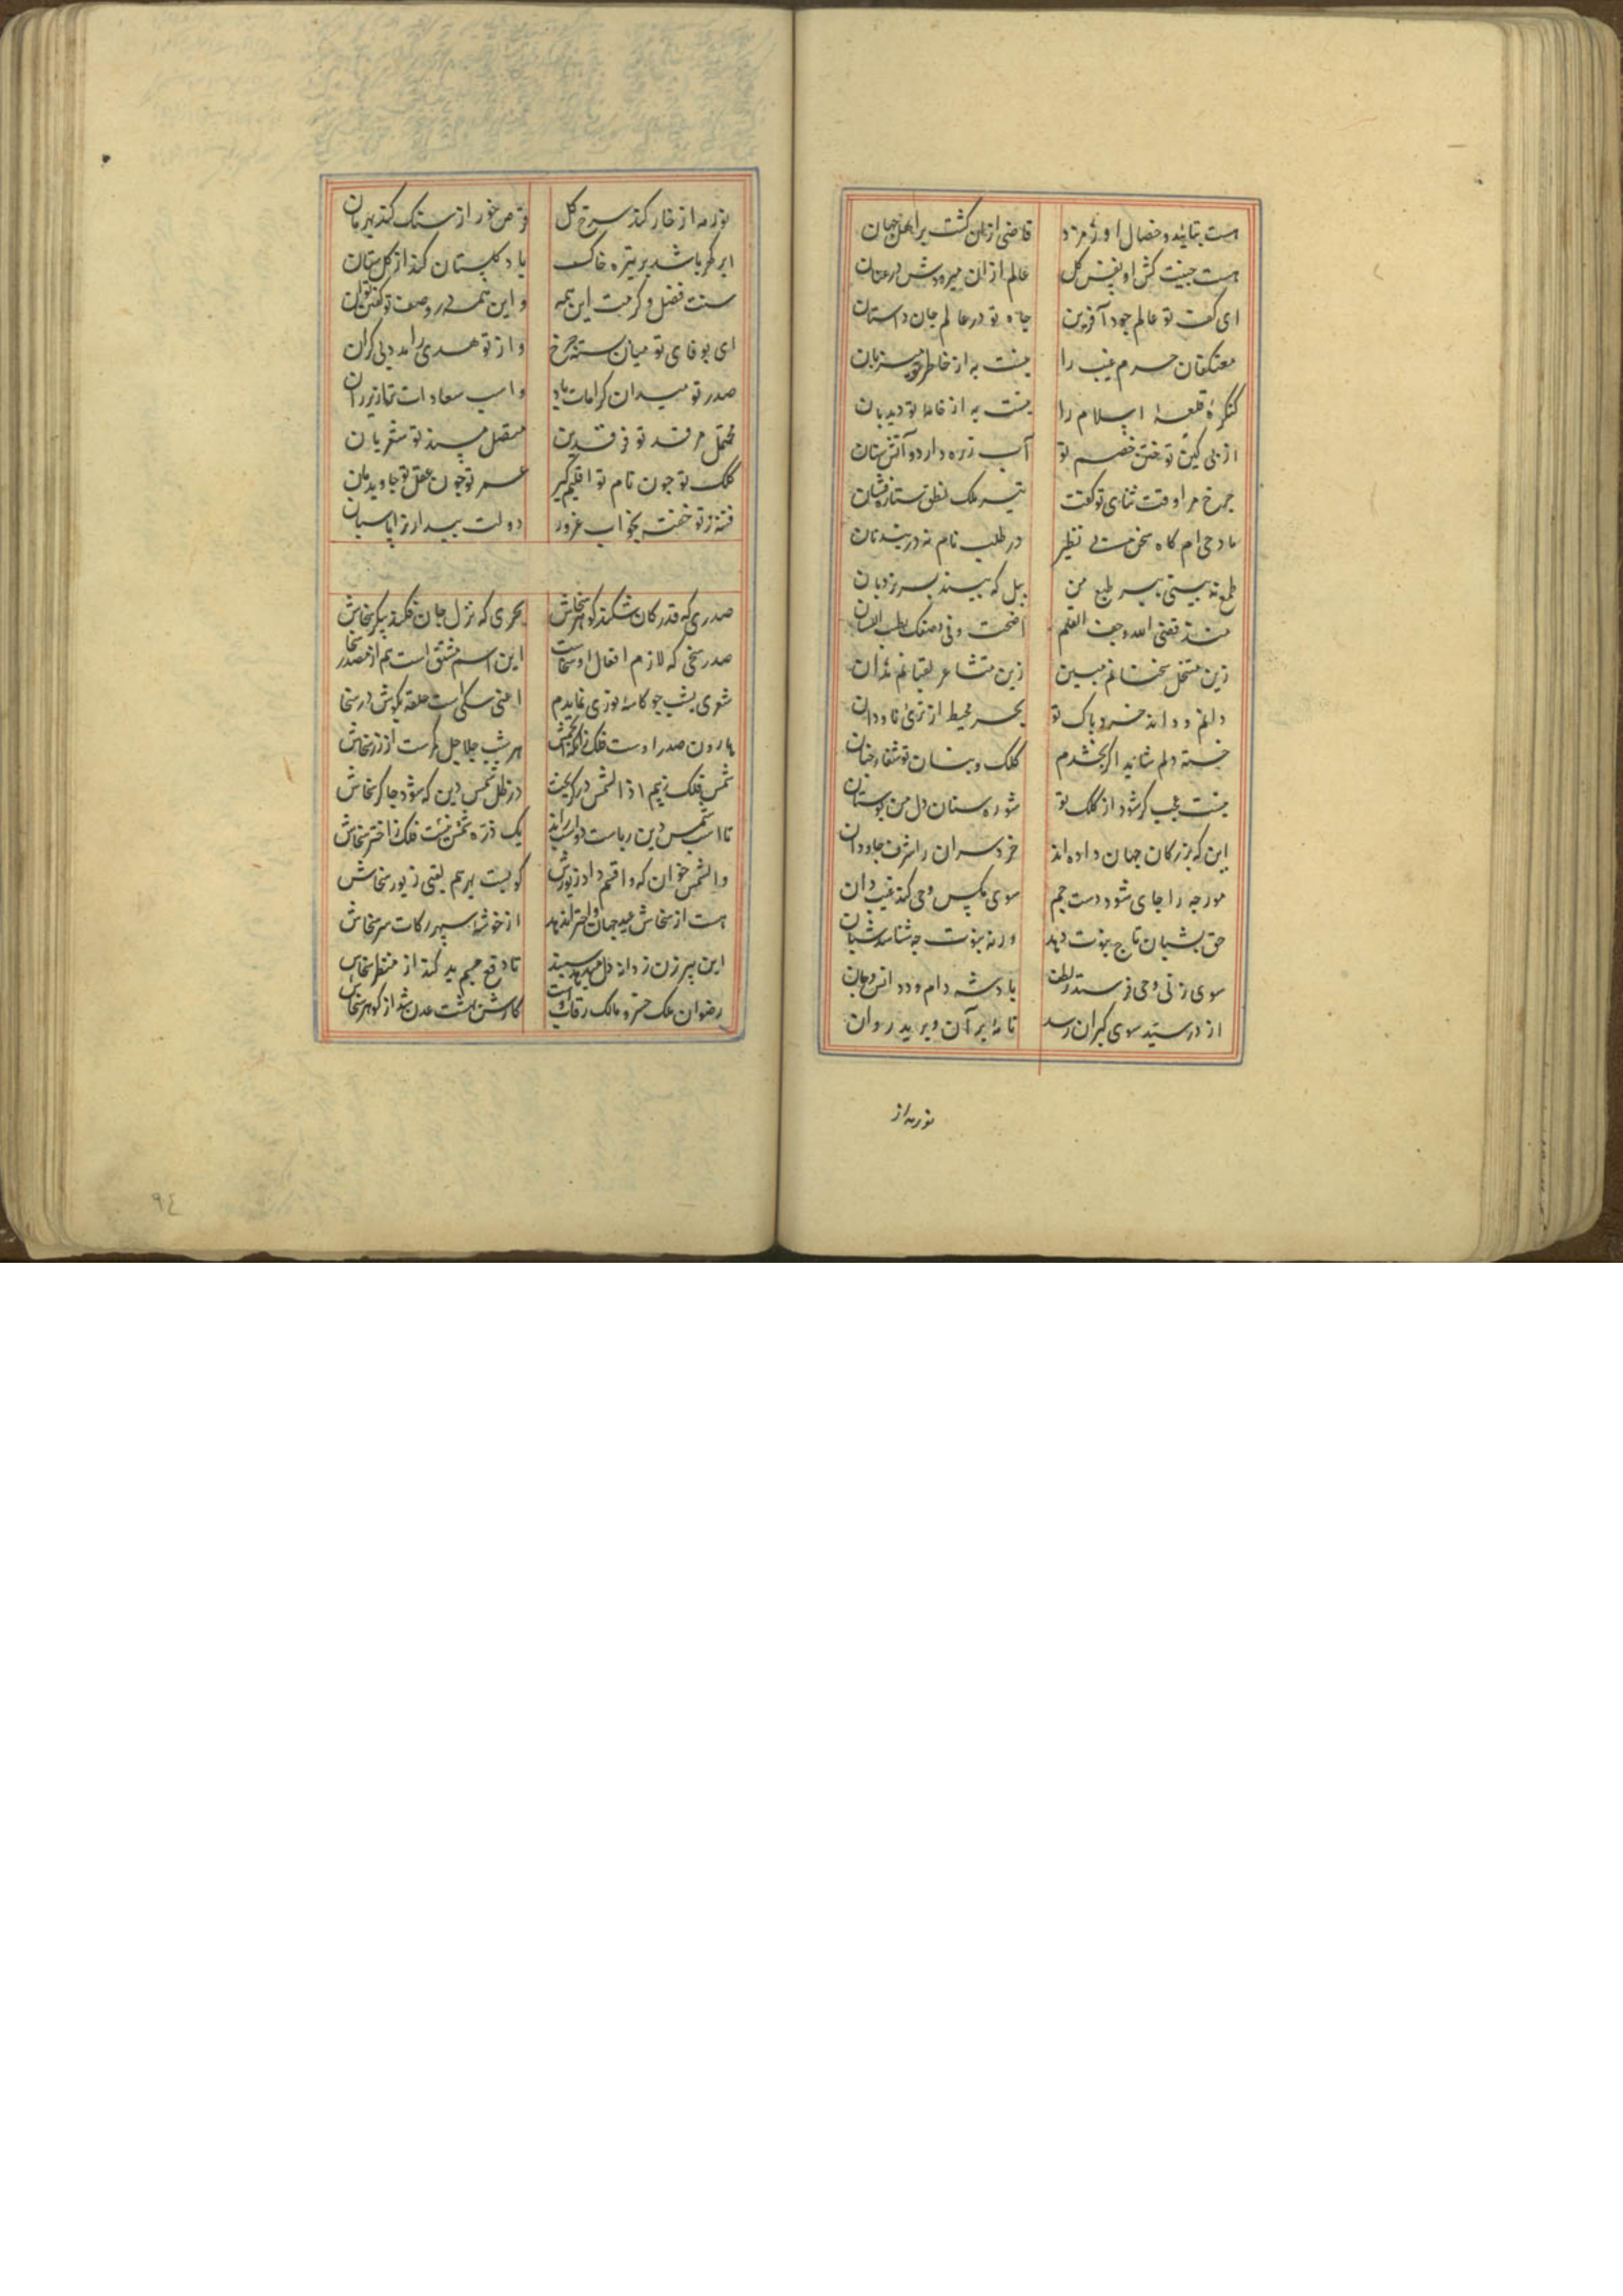 هست بتایید و خصال اورمزد قاضی ازان کشت بر اهل جهان
هست جنیبت کش او نفس کل عالم ازان میرودش در عنان
ای کفت تو عالم جود آفرین جاه تو در عالم جان داستان
معتکفان حرم غیب را نیست به از خاطر تو میزبان
کنکرهٔ قلعهٔ اسلام را نیست به از خامهٔ تو دیدبان
از پی کین توختن خصم تو آب زره دارد و آتش سنان
چرخ مرا وقت ثنای تو کفت تیر ملک نطق ستاره فشان
مادح ام کاه سخن بی نظیر در طلب نام نه در بند نان
طمع نه بینی ببر طبع من پیل که بیند بسر نردبان
منذ قضی الله وجف القلم اضحت وفی وصفک رطب اللسان
زین متنحل سخنانم مبین زین متشاعر لقبانم مدان
دانم و داند خرد پاک تو بحر محیط از تری ناودان
خسته دلم شاید اکر بخشدم کلک و بنان تو شفا رجنان
نیست عجب کر شود از کلک تو شوره ستان دل من بوستان
این که بزرکان جهان داده اند خرد سران را شرف جاودان
مورچه را جای شود دست جم سوی مکس وحی کند غیب دان
حق بشبان تاج نبوت دهد ورنه نبوت چه شناسد شبان
سوی زنی وحی فرستد ز لطف پادشه دام و دد و انس و جان
از در سید سوی کبران رسد نامهٔ پر آن و برید روان
نور مه از
نور مه از خار کند سرخ کل قرص خور از سنک کند بهرمان
ابر کهر باشد بر تیره خاک باد کلستان کند از کلستان
سنت فضل و کرمت این همه و این همه در وصف تو کفتن توان
ای بوفای تو میان بسته چرخ و از تو هدی را مدد بی کران
صدر تو میدان کرامات باد و اسب سعادات ترا زیر ران
محتمل مرقد تو فرقدین متصل مسند تو شعریان
کلک تو چون نام تو اقلیم کیر عمر تو چون عقل تو جاویدمان
فتنه ز تو خفته بخواب غرور دولت بیدار ترا پاسبان
صدری که قدر کان شکند کوهر سخاش بحری که نزل جان فکند پیکر سخاش
صدر سخی که لازم افعال او سخاست این اسم مشتق است هم از مصدر سخاش
شعری بشب چو کاسهٔ یوزی نمایدم اعنی سکی است حلقه بکوش در سخاش
هارون صدر اوست فلک زانکه انجمش هر شب جلاجل کمرست از زر سخاش
شمس فلک ز بیم اذا الشمس در کریخت در ظل شمس دین که شود چاکر سخاش
تا اسب شمس دین ریاست دواسبه راند یک ذره شمس نیست فلک ز اختر سخاش
والشمس خوان که واو قسم داد زیورش کویست بر هم یعنی زیور سخاش
هست از سخاش عید جهان و اختران دهد از خوشهٔ سپهر زکات سر سخاش
این پیر زن ز دانهٔ دل میدهد سپند تا دفع چشم بد کند از منظر سخاش
رضوان ملک خسرو مالک رقاب اوست کارش بهشت عدن شد از کوهر سخاش
٩٤